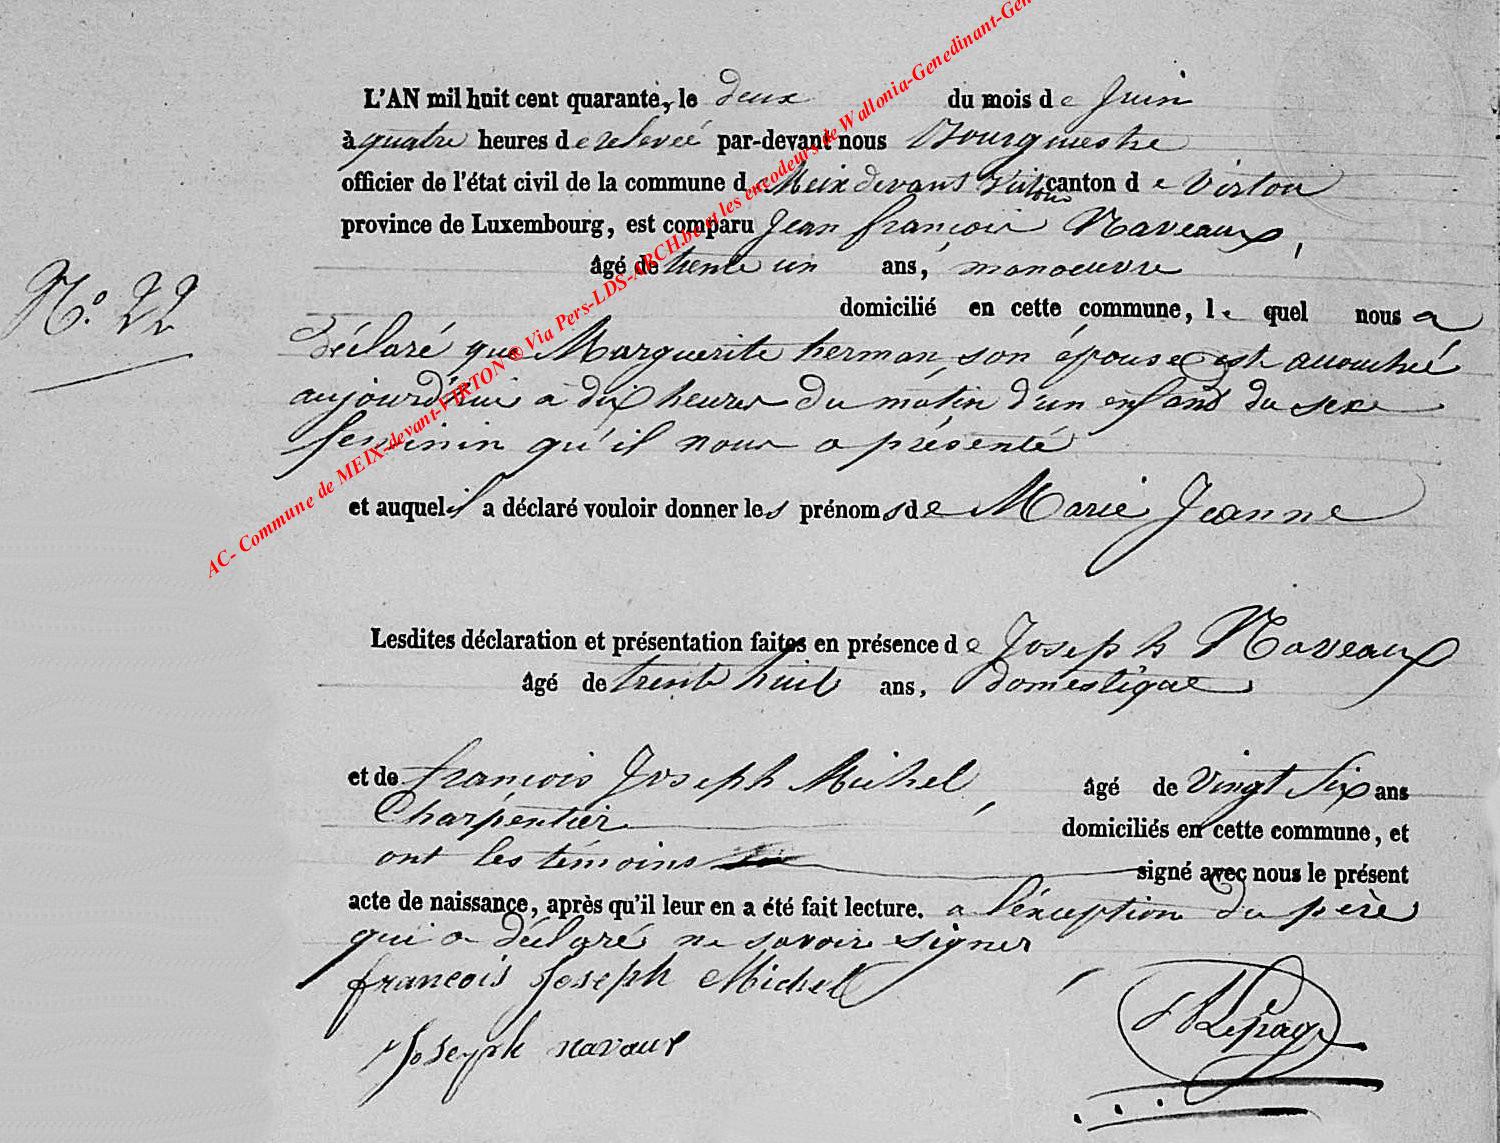 L'AN mil huit cent quarante, le deux du mois de Juin
à quatre heures de relevée par-devant nous Bourgmestre
officier de l'état civil de la commune de Meix devant Virton canton de Virton
province de Luxembourg, est comparu Jean françois Naveaux,
âgé de trente un ans, manoeuvre
domicilié en cette commune, le quel nous a
N.º 22
déclaré que Marguerite herman, son épouse est accouchée
aujourd'hui à dix heures du matin d'un enfant du sexe
feminin qu'il nous a présenté
et auquel il a déclaré vouloir donner les prénoms de Marie Jeanne
Lesdites déclaration et présentation faites en présence de Joseph Naveaux
âgé de trente huit ans, domestique
et de françois Joseph Michel, âgé de vingt six ans
Charpentier domiciliés en cette commune, et
ont les témoins signé avec nous le présent
acte de naissance, après qu'il leur en a été fait lecture. a l'éxception du père
qui a déclaré ne savoir signer
francois Joseph Michel
Joseph navaux
Lepage
AC- Commune de MEIX-devant-VIRTON ® Via Pers-LDS-ARCH.be et les encodeurs de Wallonia-Genedinant-Gen